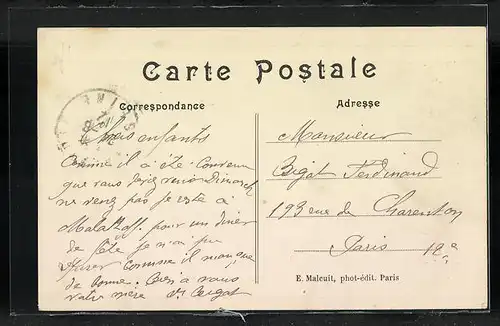 Carte Postale
Correspondance
Adresse
Chers enfants
Comme il a été convenu
que vous
ne venez pas je reste à
Malakoff pour un diner
de fête je n'ai pu
comme il manque
de bonne. à vous
votre mère
Monsieur
Bigot Ferdinand
193 rue de Charenton
Paris 12e
E. Malcuit, phot-édit. Paris